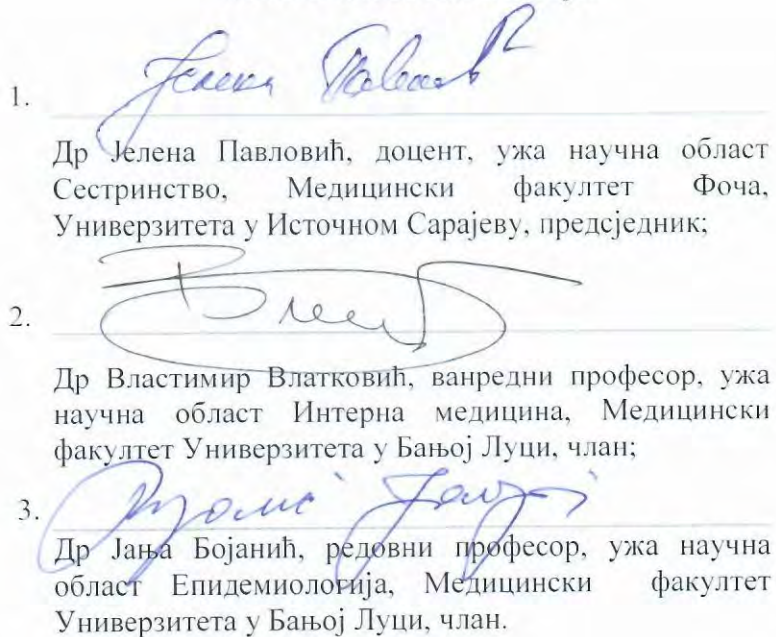 1.
Др Јелена Павловић, доцент, ужа научна област
Сестринство, Медицински факултет Фоча,
Универзитета у Источном Сарајеву, предсједник;
2.
Др Властимир Влатковић, ванредни професор, ужа
научна област Интерна медицина, Медицински
факултет Универзитета у Бањој Луци, члан;
3.
Др Јања Бојанић, редовни професор, ужа научна
област Епидемиологија, Медицински факултет
Универзитета у Бањој Луци, члан.